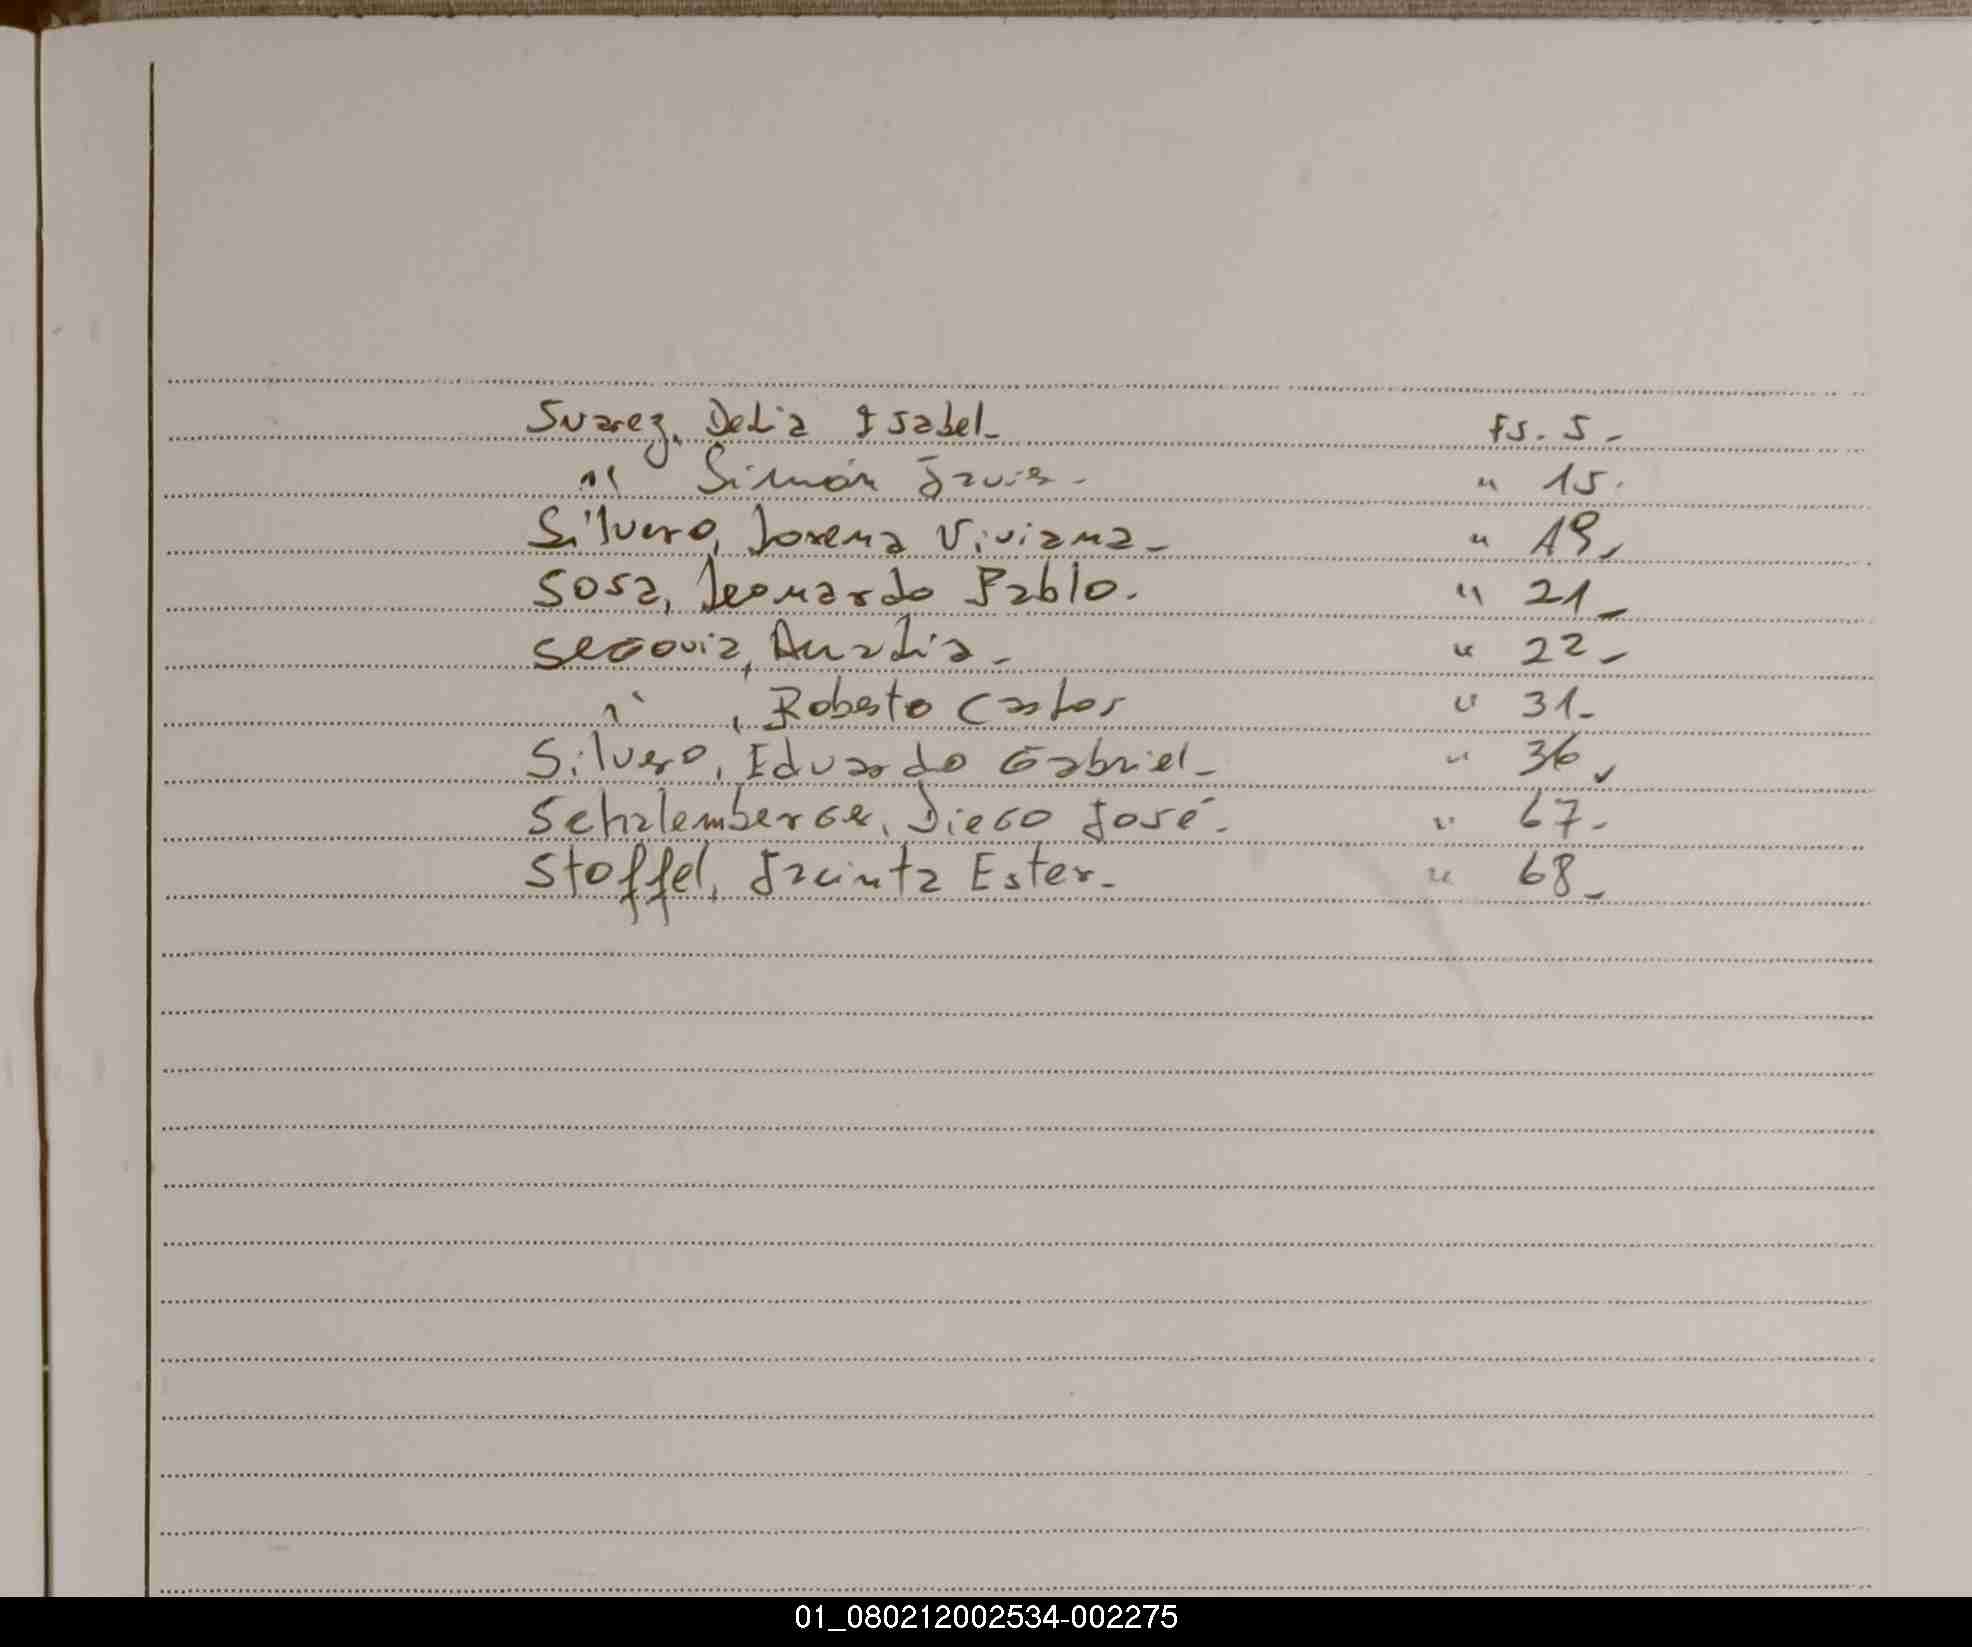 Suarez, Delia Isabel - Fs. 5 -
" Simón Javier - " 15.
Silvero, Lorena Viviana - " 19 -
Sosa, Leonardo Pablo. " 21 -
Segovia, Analia - " 22 -
" , Roberto Carlos " 31 -
Silvero, Eduardo Gabriel - " 36 -
Schalemberger, Diego José - " 67 -
Stoffel, Jacinta Ester - " 68 -
01_080212002534-002275